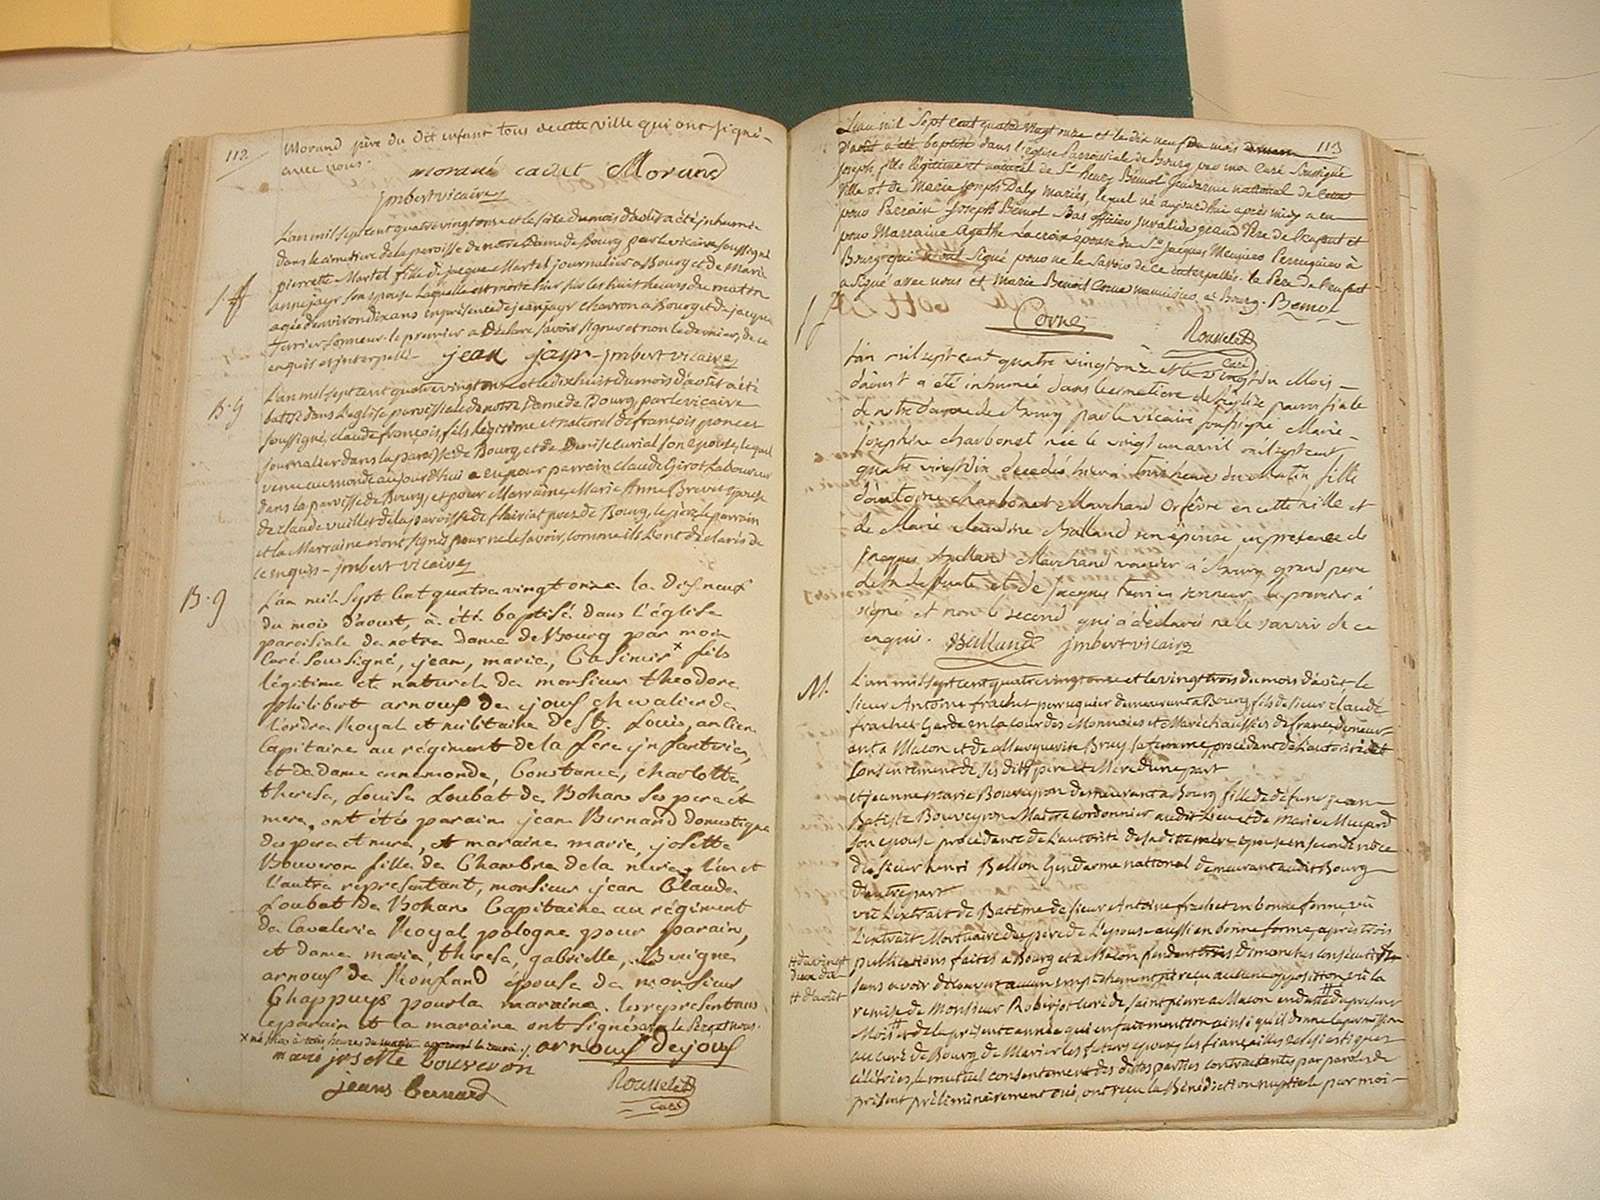 112
Morand père du dit enfant tous de cette ville qui ont signé
avec nous.
morand cadet Morand
jmbert vicaire
L'an mil sept cent quatre vingt onze et le seize du mois d'août a été jnhumée
dans le cimetiere de la paroisse de notre Dame de Bourg par le vicaire soussigné
pierrette Martel fille de jacque Martel journalier a Bourg et de Marie
anne jayr son epouse laquelle est morte hier sur les huit heurs du matin
agée d'environ dix ans en présence de jean jayr chavron a Bourg et de jacque
terrier sonneur le premier a declaré savoir signer et non le dernier, de ce
enquis et interpellé jean jayr - jmbert vicaire
B. g
L'an mil sept cent quatre vingt onze et le dix huit du mois d'août a été
batisé dans l'eglise paroissiale de notre Dame de Bourg, par le vicaire
soussigné, claude françois, fils légitime et naturel de françois
journalier dans la paroisse de Bourg, et de Denise curial son epouse, lequel
venu au monde aujourd'hui a eu pour parrain claude Girot Laboureur
dans la paroisse de Bourg, et pour Marraine Marie Anne Brevet epouse
de claude vuillet de la paroisse de près de Bourg, le père, le parrain
et la Marraine n'ont signé pour ne le savoir, comme ils l'ont déclarés de
ce enquis - jmbert vicaire
B. g
L'an mil sept cent quatre vingt onze le dix neuf
du mois d'aoust, a été baptisé dans l'église
paroisiale de notre dame de Bourg par moi
Curé soussigné, jean, marie, Casimir x fils
légitime et naturel de monsieur theodore
philibert arnoux de joux chevalier de
l'ordre Royal et militaire de St. Louis, ancien
Capitaine au régiment de la fere jnfanterie,
et de dame ennemonde, Constance, charlotte,
therese, Louise Loubat de Bohan ses pere et
mere, ont étés parain jean Bernard domestique
des pere et mere, et maraine marie josette
Bouveron fille de Chambre de la mere, l'un et
l'autre représentant, monsieur jean Claude
Loubat de Bohan Capitaine au régiment
de Cavalerie Royal pologne pour parain,
et dame marie, therese, gabrielle, Benigne
arnoux de Ronfand épouse de monsieur
Chappuys pour la maraine. les représentans
le parain et la maraine ont signé avec le Pere et nous.
x né à trois heures du matin approuvé le renvoi ./. arnoux dejoux
marie josette bouveron
jeans bernard
Rousselet
Curé
113
L'an mil sept cent quatre vingt onze et le dix neuf du mois
d'août a été baptisé dans l'église Paroissial de Bourg par moi Curé soussigné
Joseph, fils légitime et naturel de Sr. henry Bémol Gendarme national de cette
ville et de Marie Joseph Daly mariés, lequel né aujourd'hui après midy a eu
pour Parrain Joseph Bémol Bas officier jnvalide grand Père de l'enfant et
pour Marraine Agathe Lacroix epouse du Sr. Jacques Meunier Perruquier à
Bourg qui signé pour ne le savoir de ce interpellée. le Père de l'enfant
a signé avec nous et Marie Benoit Corne à Bourg. Bemol
Corne
Rousselet
Curé
L'an mil sept cent quatre vingt onze et le vingt du Mois
d'aoust a été inhumée dans le cimetiere de l'eglize parroissiale
de notre dame de Bourg par le vicaire soussigné Marie
Josephine charbonet née le vingt un avril mil sept cent
quatre vingt dix decedée hier à trois heure du matin fille
d'antoine charbonet Marchand Orfévre en cette ville et
de Marie claudine Balland son épouse, en presence de
jacques Balland Marchand à Bourg grand pere
de la defunte et de jacques terrier sonneur le premier a
signé et non le second qui a déclaré ne le savoir de ce
enquis. Balland jmbert vicaire
M.
L'an mil sept cent quatre vingt onze et le vingt trois du mois d'août, le
sieur Antoine frachet perruquier demeurant a Bourg fils de sieur claude
frachet Garde en la cour des Monnoies et Maréchaussées de france, demeur-
ant a Macon et de Marguerite Bruy sa femme, procédant de l'autorité et
consentement de ses dits père et Mère d'une part
et jeanne Marie Bouveyron demeurant a Bourg fille de défunt jean
Batiste Bouveyron Maître cordonnier audit lieu et de Marie Musard
son epouse procédante de l'autorité de sa ditte mère epouse en seconde noce
de sieur henri Bellon Gendarme national demeurant audit Bourg
d'autre part
vû l'extrait de Batême de sieur Antoine frachet en bonne forme, vû
l'extrait Mortuaire du père de l'epouse aussi en bonne forme, après trois
publications faites a Bourg et a Macon pendant trois Dimanches consécutifs
sans avoir découvert aucun empêchement ni reçu aucune opposition, vû la
remise de Monsieur Roberjot curé de Saint pierre a Macon en datte du present
Mois et de la présente année qui en fait mention ainsi qu'il donne la permission
au curé de Bourg de Marier les futurs epoux, les fiançailles
célébrées, le mutuel consentement des dittes parties contractantes par paroles de
présent préliminairement oui, ont reçu la Bénédiction nuptiale par moi
# du vingt
deux du
# d'août